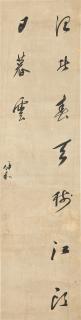 渭北春天樹江東
日暮雲